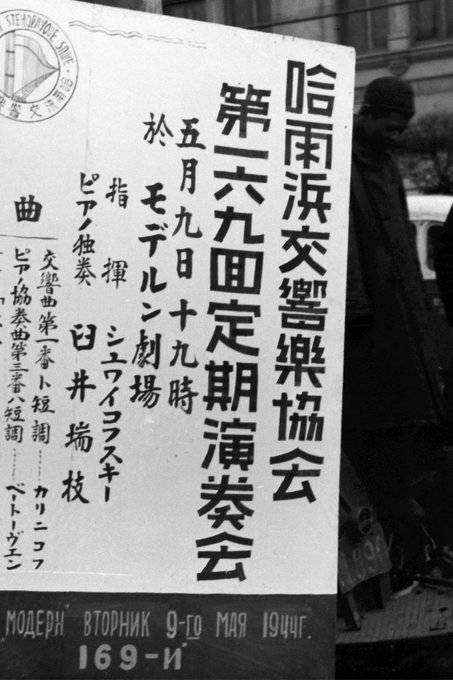 哈雨浜交響樂協会
第一六九回定期演奏会
五月九日十九時
於モデルン劇場
指揮 シュワイコフスキー
ピアノ独奏 臼井瑞枝
曲
交響曲第一番ト短調……カリニコフ
ピアノ協奏曲第三番ハ短調……ベートーヴエン
"МОДЕРН" ВТОРНИК 9-го МАЯ 1944г.
169-Й